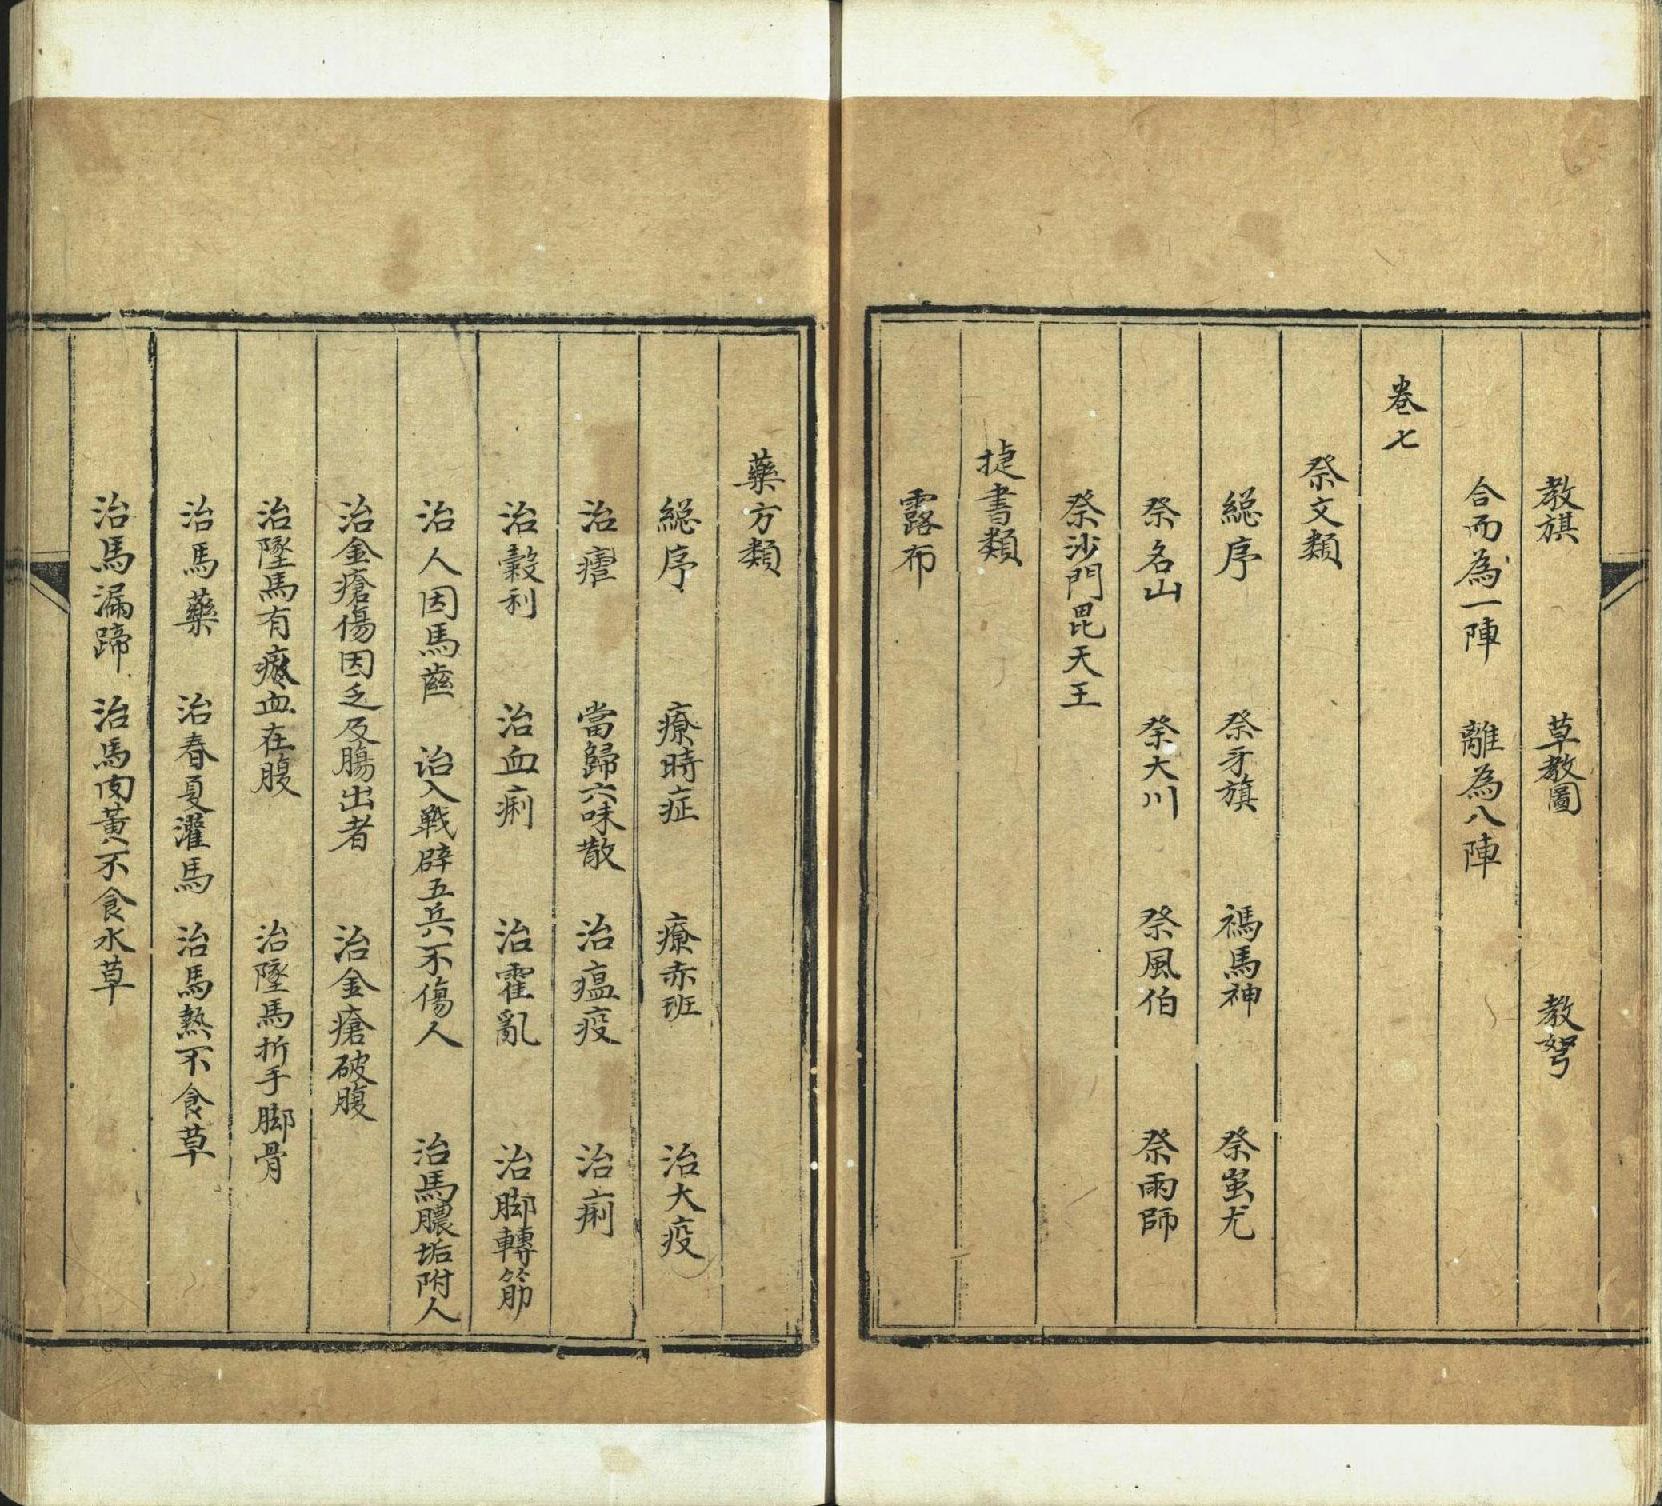 教旗　草教圖　教弩
合而為一陣　離為八陣
卷七
祭文類
總序　祭牙旗　禡馬神　祭蚩尤
祭名山　祭大川　祭風伯　祭雨師
祭沙門毘天王
捷書類
露布
藥方類
總序　療時症　療赤班　治大疫
治瘧　當歸六味散　治瘟疫　治痢
治穀利　治血痢　治霍亂　治脚轉筋
治人因馬　治入戰辟五兵不傷人　治馬膿垢附人
治金瘡傷因乏及腸出者　治金瘡破腹
治墜馬有瘀血在腹　治墜馬折手脚骨
治馬藥　治春夏灌馬　治馬熱不食草
治馬漏蹄　治馬肉黃不食水草